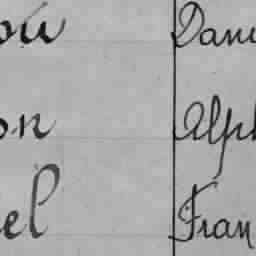 ou Dani
on Alph
el Fran